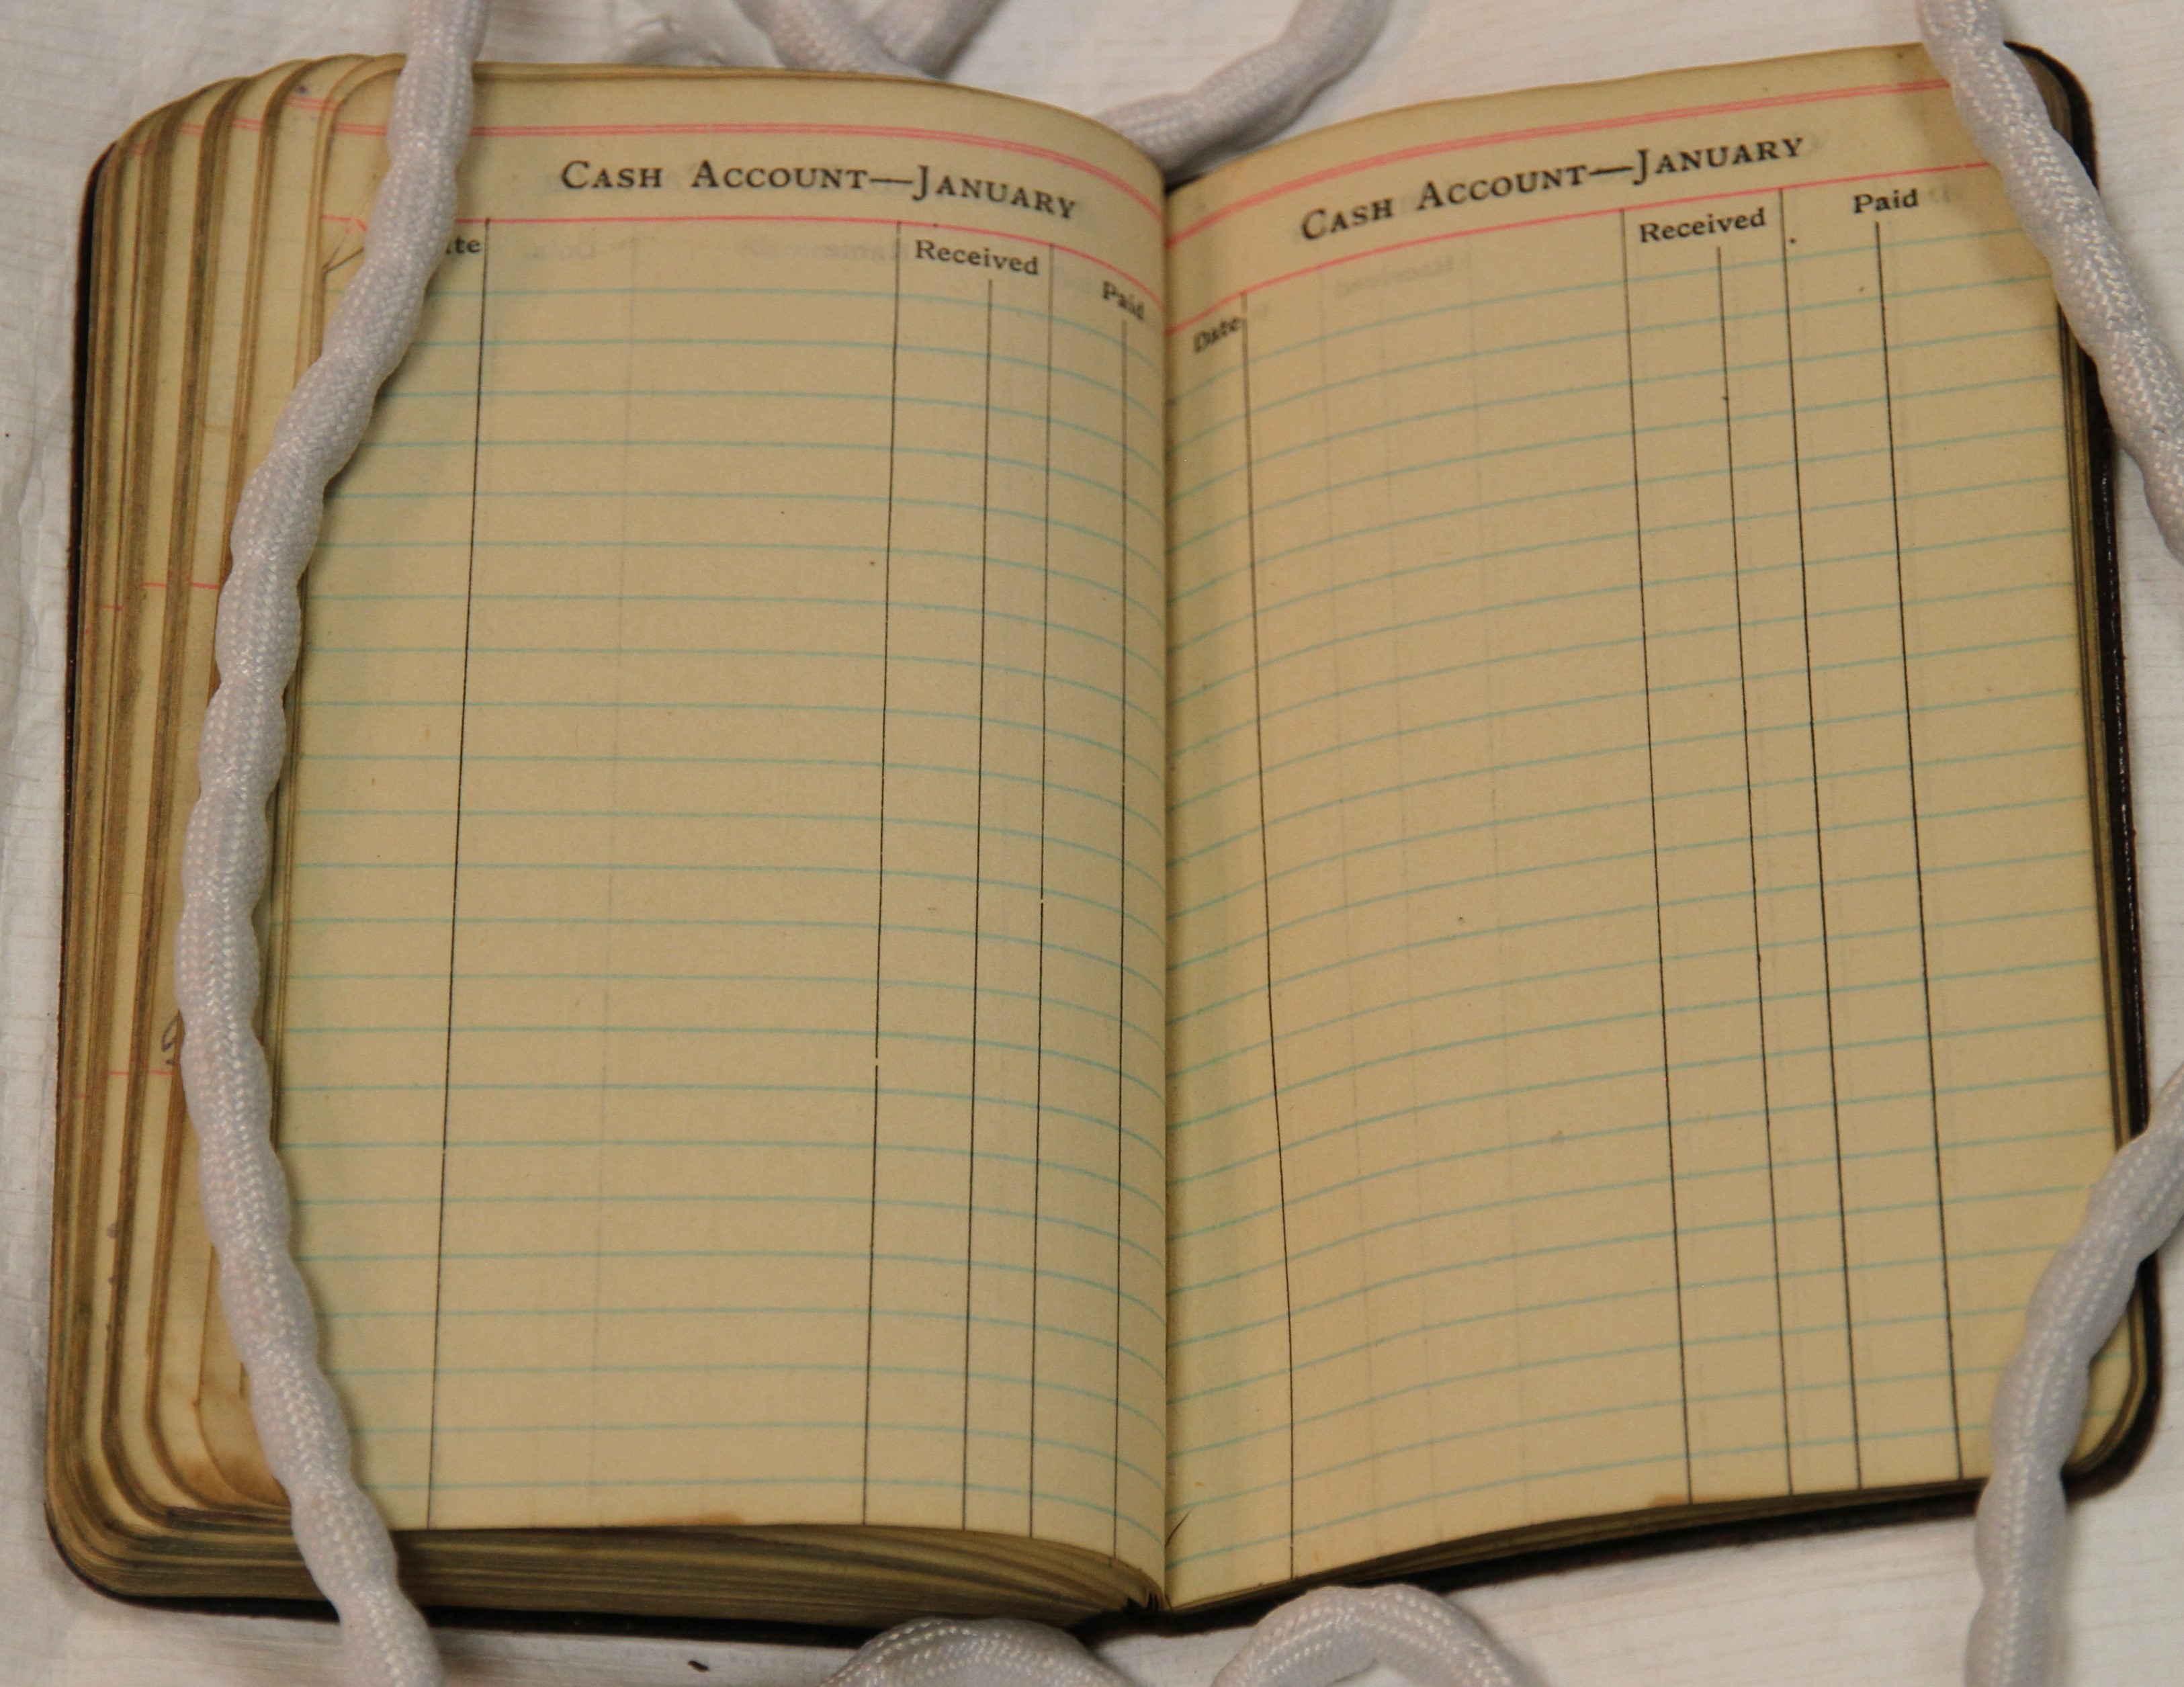 CASH ACCOUNT—JANUARY
te Received Paid
CASH ACCOUNT—JANUARY
Date Received Paid